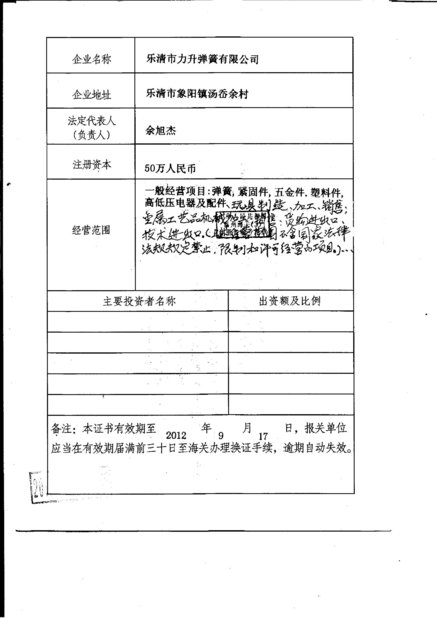 企业名称 乐清市力升弹簧有限公司
企业地址 乐清市象阳镇汤岙余村
法定代表人
(负责人) 余旭杰
注册资本 50万人民币
经营范围
一般经营项目:弹簧,紧固件,五金件,塑料件,
高低压电器及配件、玩具制造、加工、销售;
金属工艺品 、货物进出口、
技术进出口。( 不含国家法律
法规规定禁止、限制和许可经营的项目。)
主要投资者名称 出资额及比例
备注:本证书有效期至 2012 年 9 月 17 日,报关单位
应当在有效期届满前三十日至海关办理换证手续,逾期自动失效。